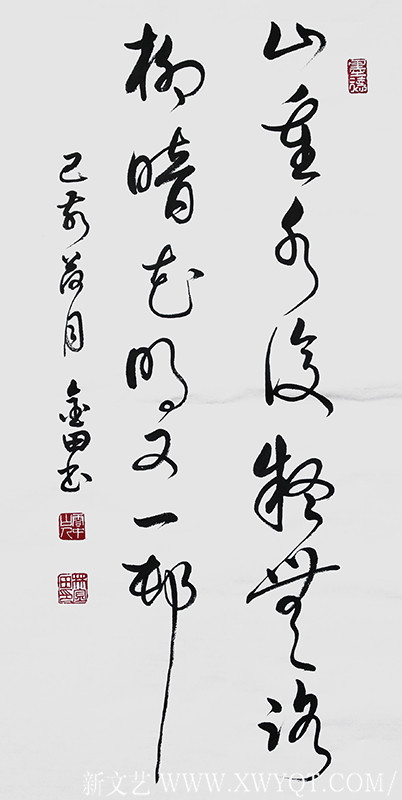 山重水復疑無路
柳暗花明又一邨
己亥荷月 金田书
新文艺 WWW.XWYQT.COM/